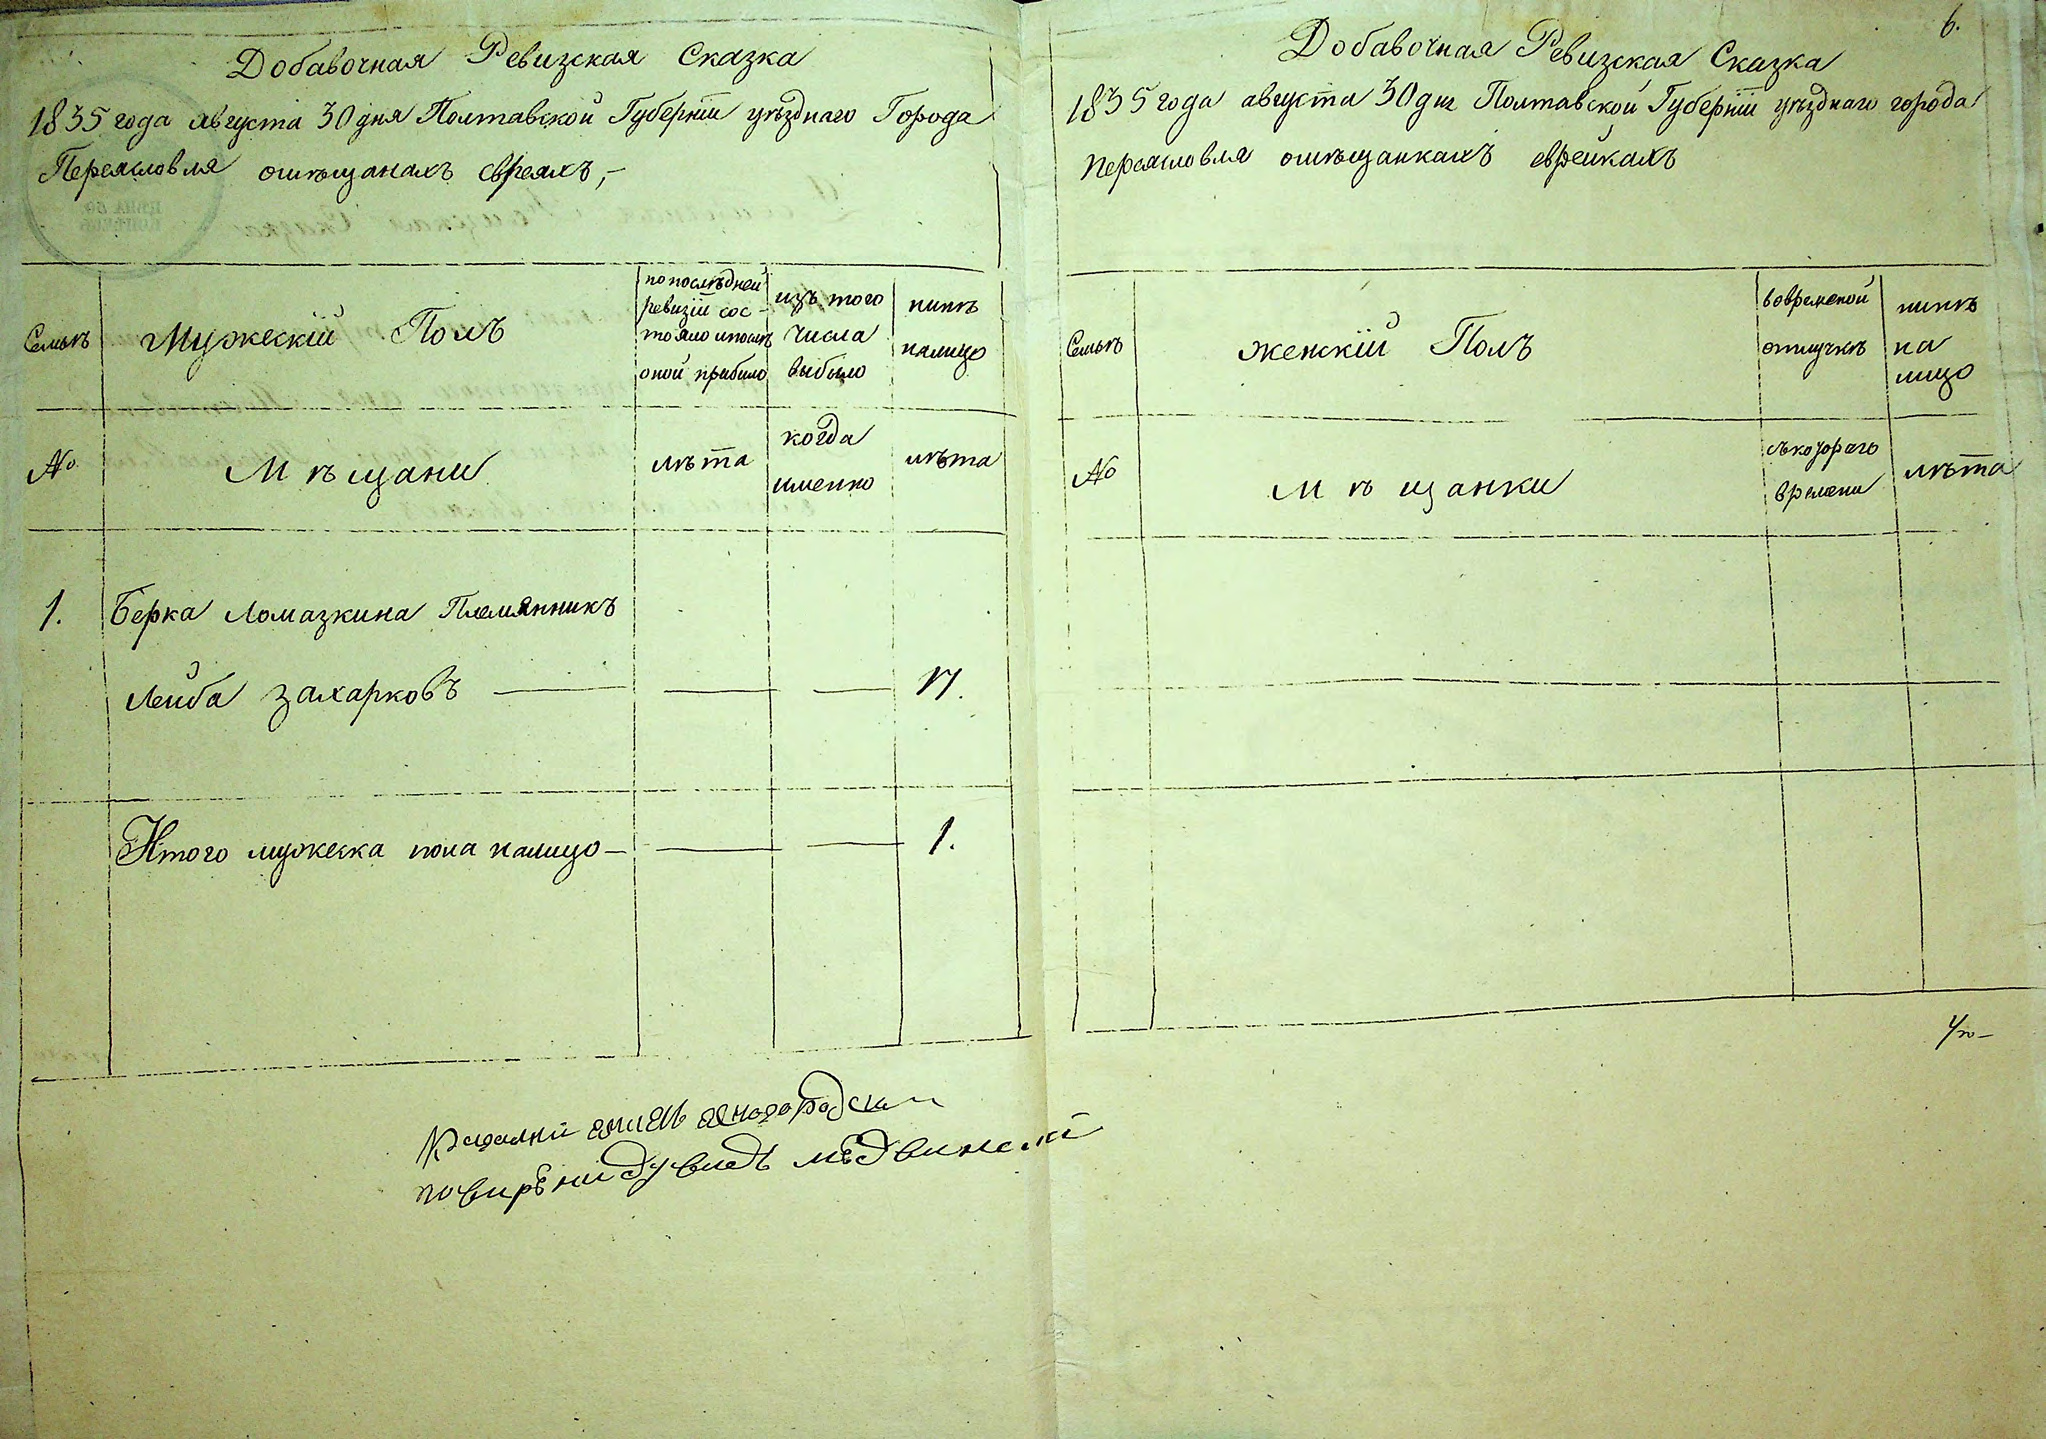 Добавочная Ревизская Сказка
1835 года августа 30 дня Полтавской Губерніи уѣзднаго Города
Переяловля омѣщанахъ евреяхъ,—
Семьи
Мужескій Полъ
попослѣдней
ревизіи сос-
тояло ипослѣ
оной прибыло
изъ того
числа
выбыло
нынѣ
налицо
№
Мѣщани
лѣта
когда
именно
лѣта
1. Берка Ломазкина Племянникъ
Лейба Захарковъ — — — 17.
Итого мужеска пола налицо — — — 1.
повирѣни
6.
Добавочная Ревизская Сказка
1835 года августа 30 дня Полтавской Губерніи уѣзднаго города
Переяловля омѣщанкахъ еврейкахъ
Семьи
женскій Полъ
вовременой
отлучкѣ
нынѣ
на
лицо
№
Мѣщанки
съкотораго
времени
лѣта